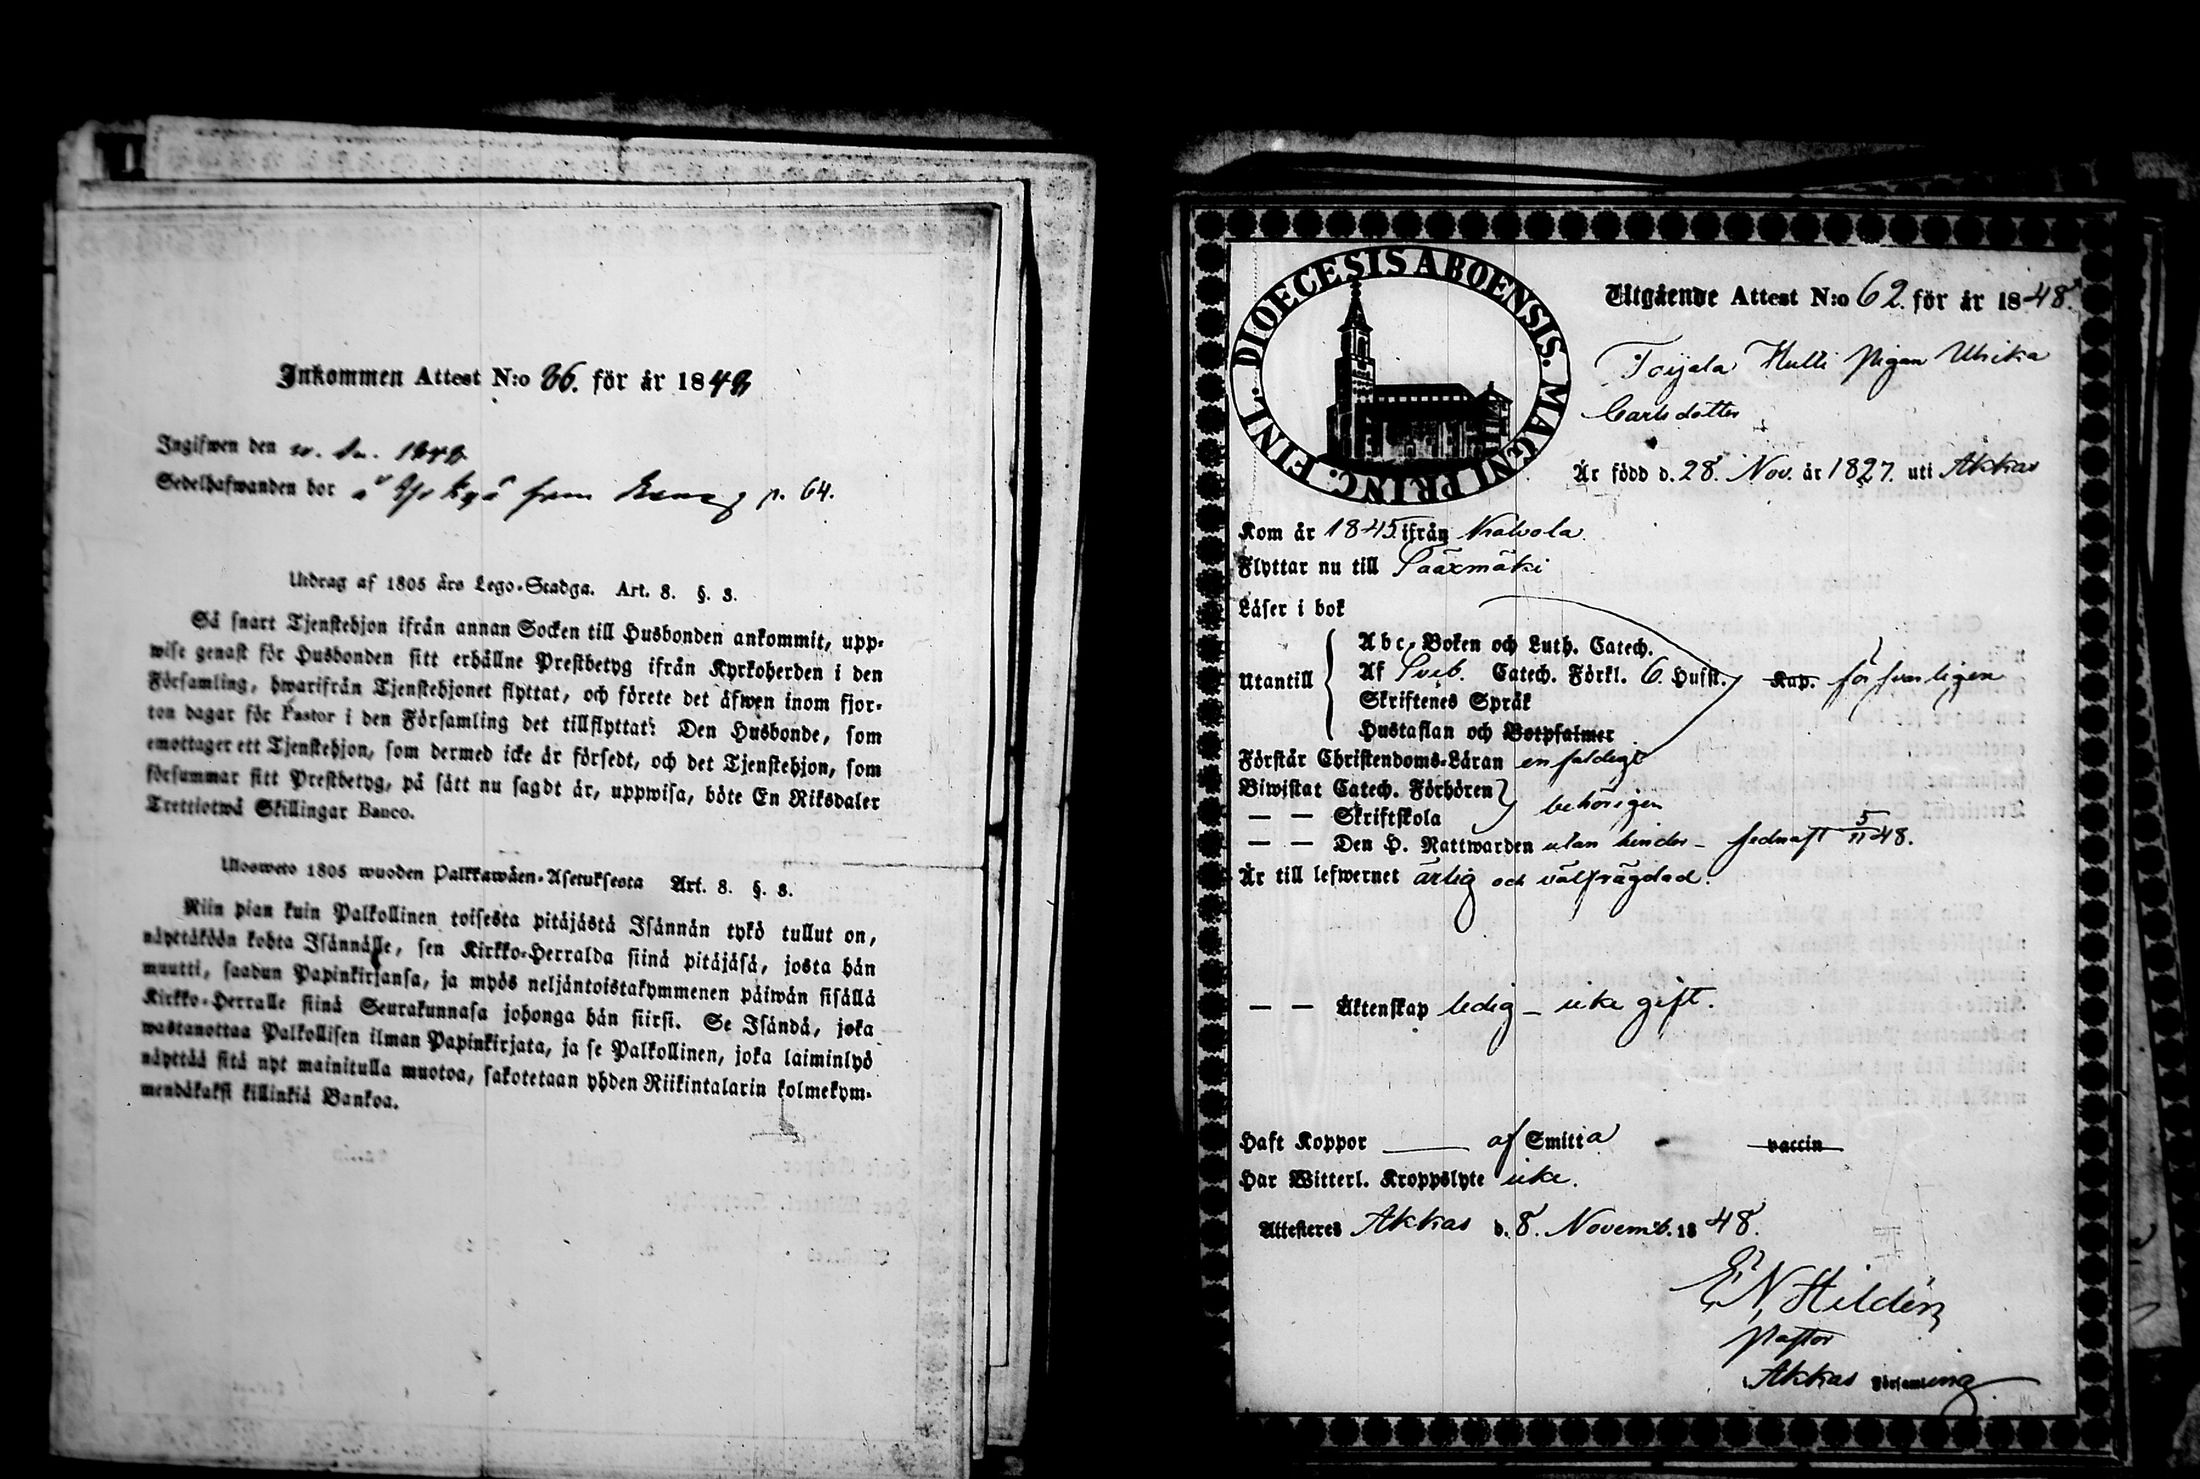 Inkommen Attest N:o 36. för år 1848
Ingifwen den 1848
Sedelhafwanden bor å p. 64.
Utdrag af 1805 års Lego-Stadga. Art. 8. §. 3.
Så snart Tjenstehjon ifrån annan Socken till Husbonden ankommit, upp-
wise genast för Husbonden sitt erhållne Prestbetyg ifrån Kyrkoherden i den
Församling, hwarifrån Tjenstehjonet flyttat, och förete det äfwen inom fjor-
ton dagar för Pastor i den Församling det tillflyttat: Den Husbonde, som
emottager ett Tjenstehjon, som dermed icke är försedt, och det Tjenstehjon, som
försummar sitt Prestbetyg, på sätt nu sagdt är, uppwisa, böte En Riksdaler
Trettiotwå Skillingar Banco.
Ulosweto 1805 wuoden Palkkawäen-Asetuksesta Art. 8. §. 3.
Niin pian kuin Palkollinen toisesta pitäjästä Isännän tykö tullut on,
näyttäköön kohta Isännälle, sen Kirkko-Herralda siinä pitäjäsä, josta hän
muutti, saadun Papinkirjansa, ja myös neljäntoistakymmenen päiwän sisällä
Kirkko-Herralle siinä Seurakunnasa johonga hän siirsi. Se Isändä, joka
wastanottaa Palkollisen ilman Papinkirjata, ja se Palkollinen, joka laiminlyö
näyttää sitä nyt mainitulla muotoa, sakotetaan yhden Riikintalarin kolmekym-
mendäkaksi killinkiä Bankoa.
DIOECESIS ABOENSIS. MAGNI PRINC. FINL.
Utgående Attest N:o 62. för år 1848.
Toijala Hulli Pigan Ulrika
Carlsdotter
Är född d. 28. Nov. år 1827. uti Akkas
Kom år 1845 ifrån Kalvola
Flyttar nu till Sääxmäki
Läser i bok
Abc-Boken och Luth. Catech.
Utantill Af Sveb. Catech. Förkl. 6. Hufst. Kap. försvarligen
Skriftenes Språk
Hustaflan och Botpsalmer
Förstår Christendoms-Läran enfaldigt
Biwistat Catech. Förhören behörigen
— — Skriftskola
— — Den H. Nattwarden utan hinder – sednast 5/11 48.
Är till lefwernet ärlig och välfrägdad.
— — Äktenskap ledig – icke gift.
Haft Koppor af Smitta vaccin
Har Witterl. Kroppslyte icke.
Attesteres Akkas d. 8. Novemb. 1848.
E. N. Hildén
Pastor
i Akkas Församling